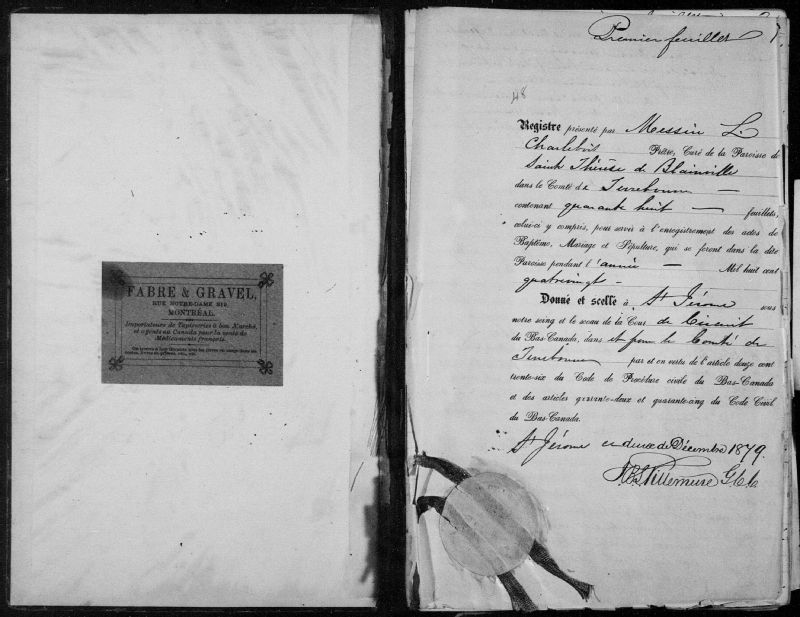 FABRE & GRAVEL,
RUE NOTRE-DAME 219
MONTRÉAL.
Importateurs de Tapisseries à bon Marché,
et agents au Canada pour la vente de
Médicaments français.
Premier feuillet
48
Registre présenté par Messire L.
Charlebois Prêtre, Curé de la Paroisse de
Sainte Thérèse de Blainville
dans le Comté de Terrebonne —
contenant quarante huit — feuillets,
celui-ci y compris, pour servir à l'enregistrement des actes de
Baptême, Mariage et Sépulture, qui se feront dans la dite
Paroisse pendant l'année — Mil huit cent
quatrevingt —
Donné et scellé à St Jérome sous
notre seing et le sceau de la Cour de Circuit
du Bas-Canada, dans et pour le Comté de
Terrebonne par et en vertu de l'article douze cent
trente-six du Code de Procédure civile du Bas-Canada
et des articles quarante-deux et quarante-cinq du Code Civil
du Bas-Canada.
St Jérome ce deux de Décembre 1879.
Villemure G.C.C.